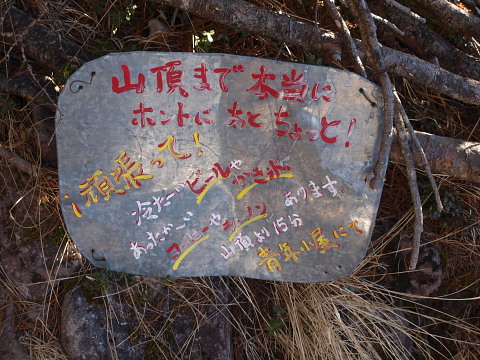 山頂まで本当に
ホントにあとちょっと!
頑張って!
冷たーいビールやかき氷
あったか〜いコーヒーやラーメンあります
山頂より15分
青年小屋にて